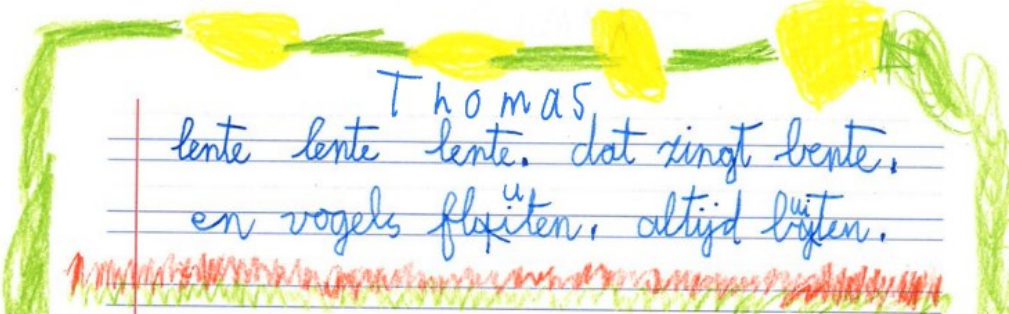 Thomas
lente lente lente. dat zingt bente.
en vogels fluiten. altijd buiten.